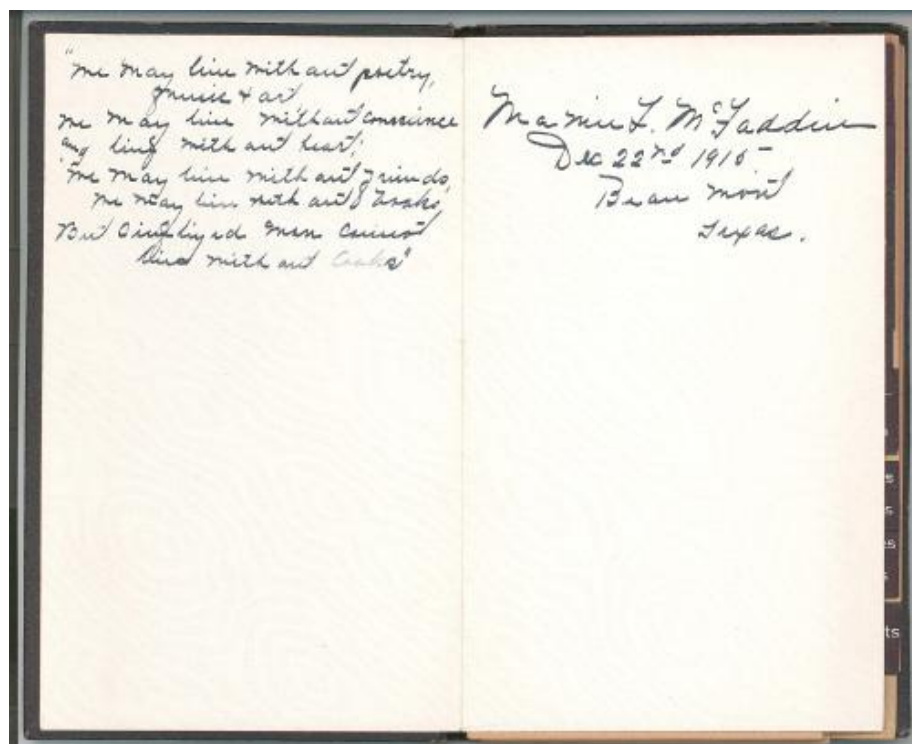 "We may live without poetry,
music & art,
We may live without conscience
and live without heart;
"We may live without friends,
We may live without books,
But civilized man cannot
live without Cooks"
Mamie L. McFaddin
Dec 22nd 1915
Beaumont
Texas.
s
s
es
s
ts